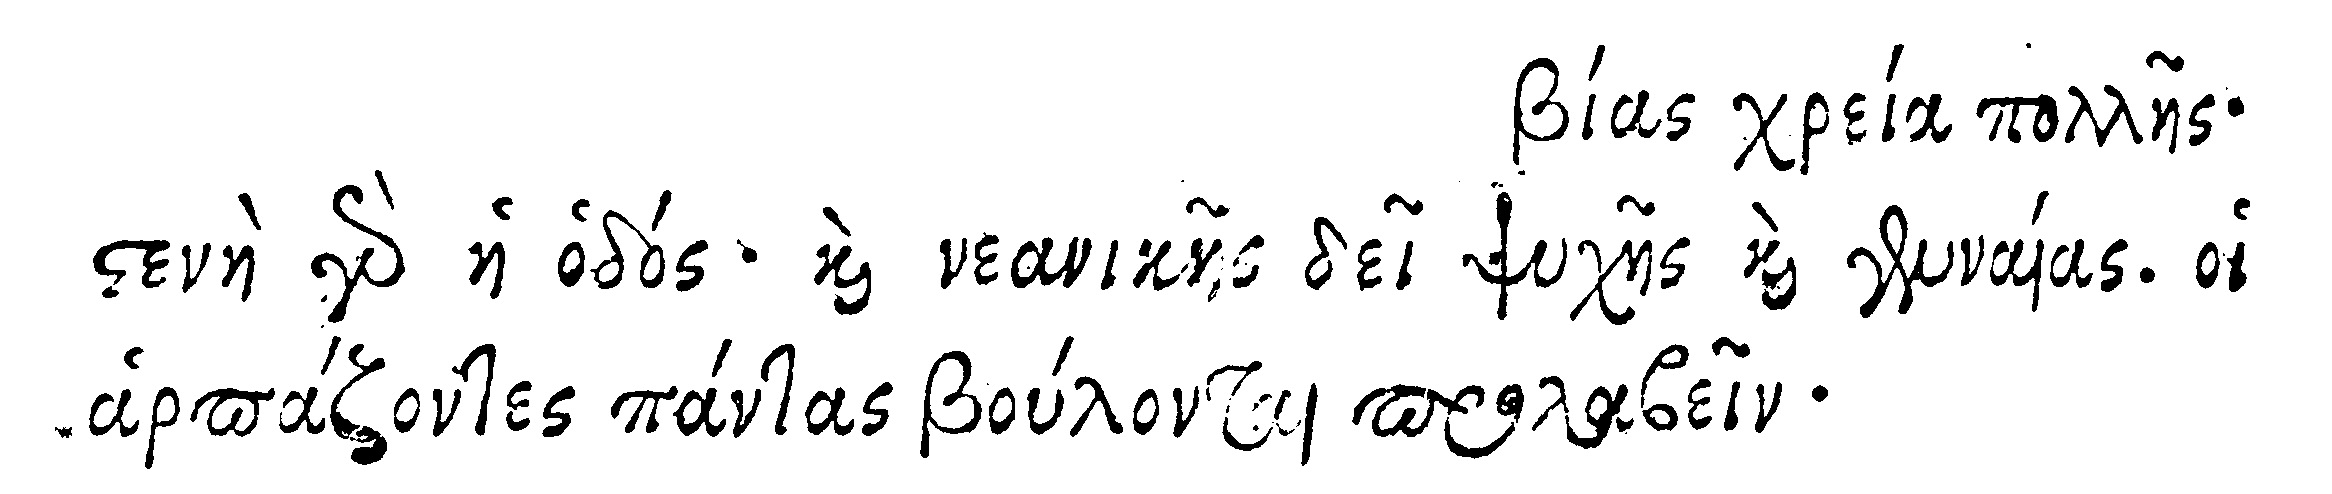 βίας χρεία πολλῆς·
στενὴ γὰρ ἡ ὁδός· καὶ νεανικῆς δεῖ ψυχῆς καὶ γενναίας. οἱ
ἁρπάζοντες πάντας βούλονται προλαβεῖν·